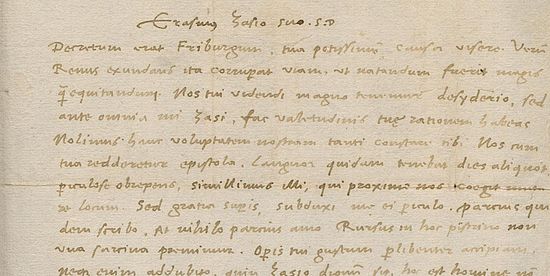 Erasmus Zasio suo. s. D
Decretum erat Friburgum, tua potissimũ causa visere. Verũ
Renus exundans ita corrupat viam, ut natandum fuerit magis
q̃ equitandum. Nos tui videndi magno tenemur desyderio, sed
ante omnia mi Zasi, fac valetudinis tuę rationem habeas
Nolimus hanc voluptatem nostram tanti constare tibi. Nos cum
tua redderetur epistola, languor quidam tenebat dies aliquot,
piculose obrepens, simillimus illi, qui proxime nos coegit
re locum. Sed gratia supis, subduxi me ei piculo. parcius qui
dem scribo, At nihilo parcius amo Rursus in hoc pistrino non
una sarcina premimur. Opis tui gustum plibenter accipiam
neq enim addubito, quin Zasio dignũ sit, hoc est homine nõ